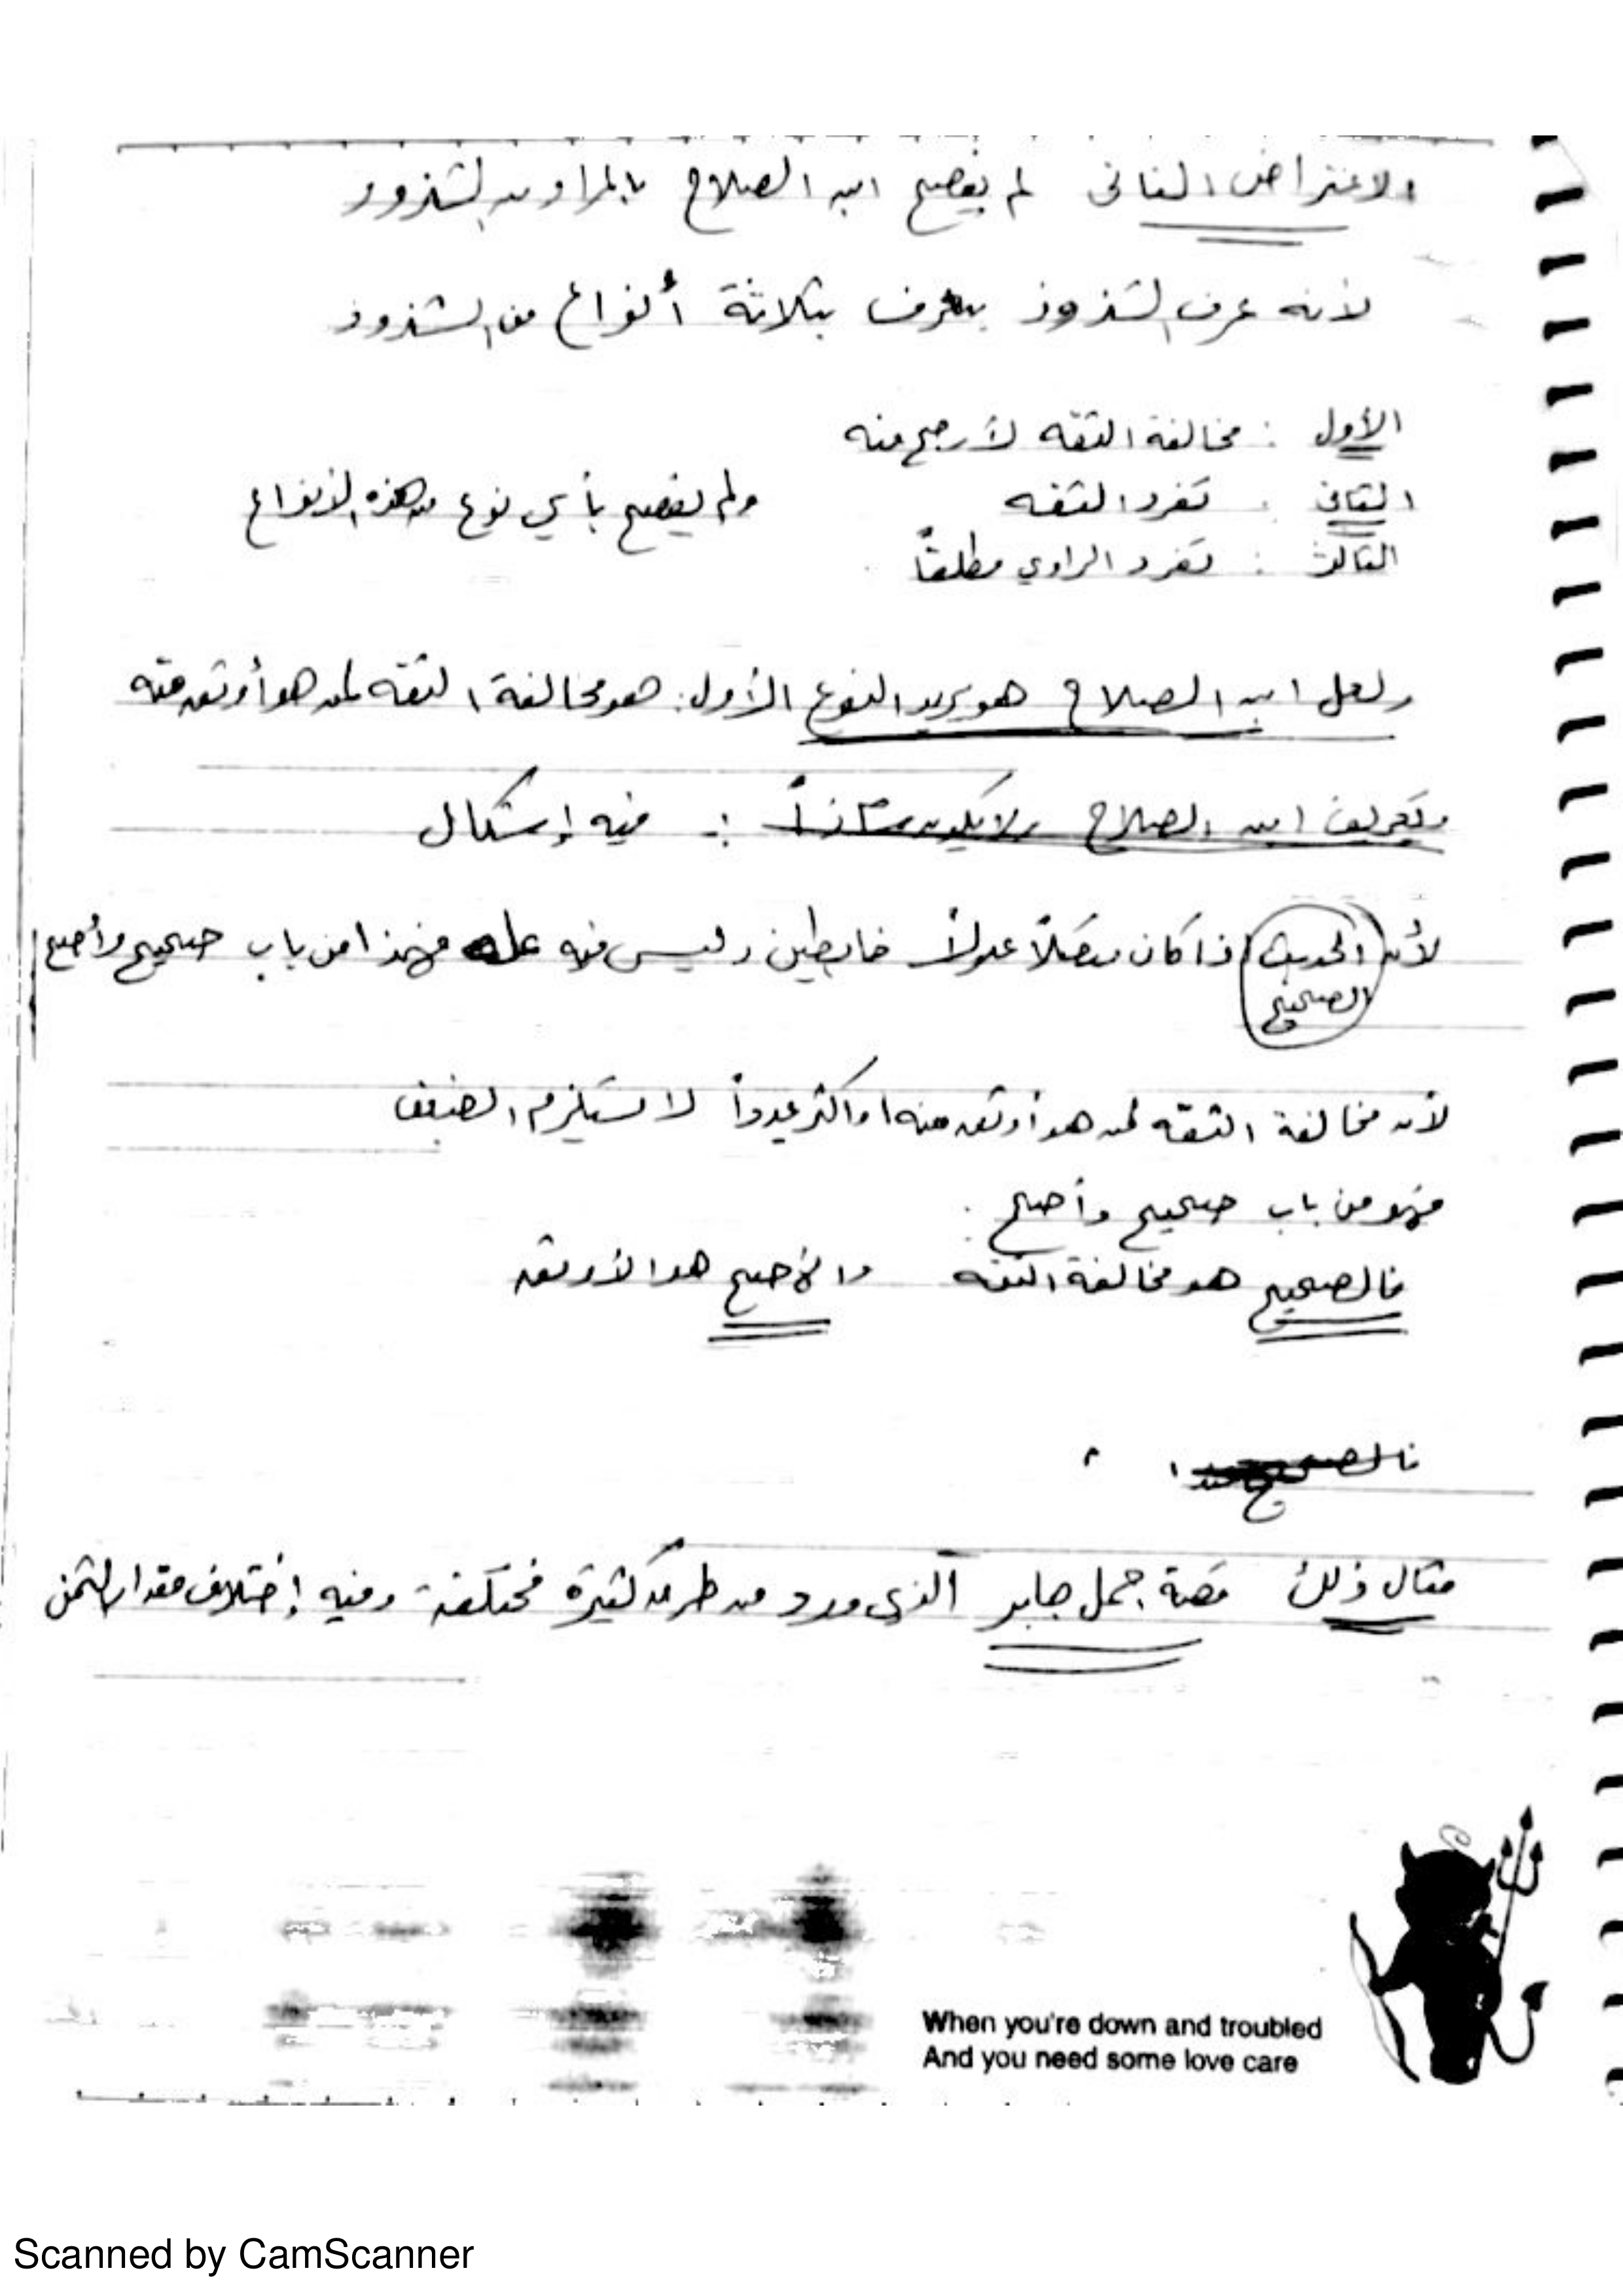 الاعتراض الثاني لم يفصح ابن الصلاح بالمراد من الشذوذ
لأنه عرف الشذوذ بثلاثة أنواع من الشذوذ
الأول : مخالفة الثقه لأرجح منه
الثاني : تفرد الثقه ولم يفصح بأي نوع من هذه الأنواع
الثالث : تفرد الراوي مطلقاً
ولعل ابن الصلاح هو يريد النوع الأول : هو مخالفة الثقه لمن هو أوثق منه
وتعريف ابن الصلاح ولا يكون شاذاً : فيه إشكال
لأن الحديث إذا كان متصلاً عدولاً ضابطين وليس فيه علة فهذا من باب صحيح وأصح
الصحيح
لأن مخالفة الثقه لمن هو أوثق منه أو أكثر عدداً لا تستلزم الضعف
فهو من باب صحيح وأصح .
فالصحيح هو مخالفة الثقه والأصح هو الأوثق
مثال ذلك قصة جمل جابر الذي ورد من طرق كثيرة مختلفة وفيه إختلاف مقدار الثمن
When you're down and troubled
And you need some love care
Scanned by CamScanner